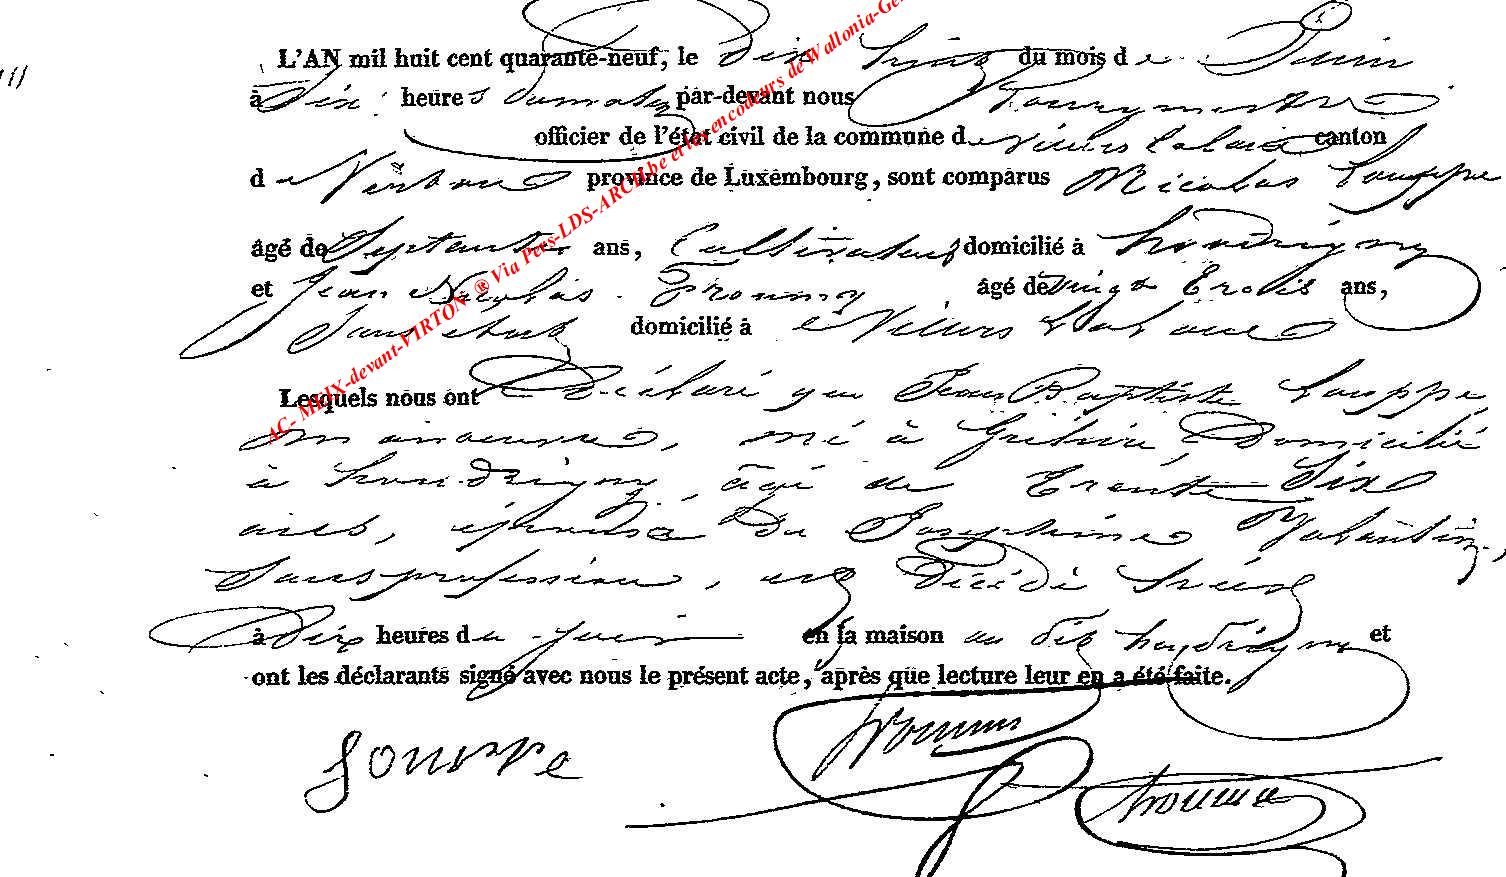 L'AN mil huit cent quarante-neuf, le Dix huit du mois de Juin
à Dix heures du matin par-devant nous Bourgmestre
officier de l'état civil de la commune de Villers la loue canton
de Virton province de Luxembourg, sont comparus Nicolas Louppe
âgé de Septante ans, Cultivateur domicilié à houdrigny
et Jean Nicolas ans, âgé de vingt trois ans,
Sans état domicilié à Villers la loue
Lesquels nous ont Déclaré que Jean Baptiste Louppe
manoeuvre, né à Domicilié
à houdrigny, âgé de Trente Six
ans, époux de Josephine Valentin,
Sans profession, est Décédé hier
à Dix heures du en la maison au dit houdrigny et
ont les déclarants signé avec nous le présent acte, après que lecture leur en a été faite.
Louppe
AC- MEIX-devant-VIRTON ® Via Pers-LDS-ARCH.be et les encodeurs de Wallonia-Ge